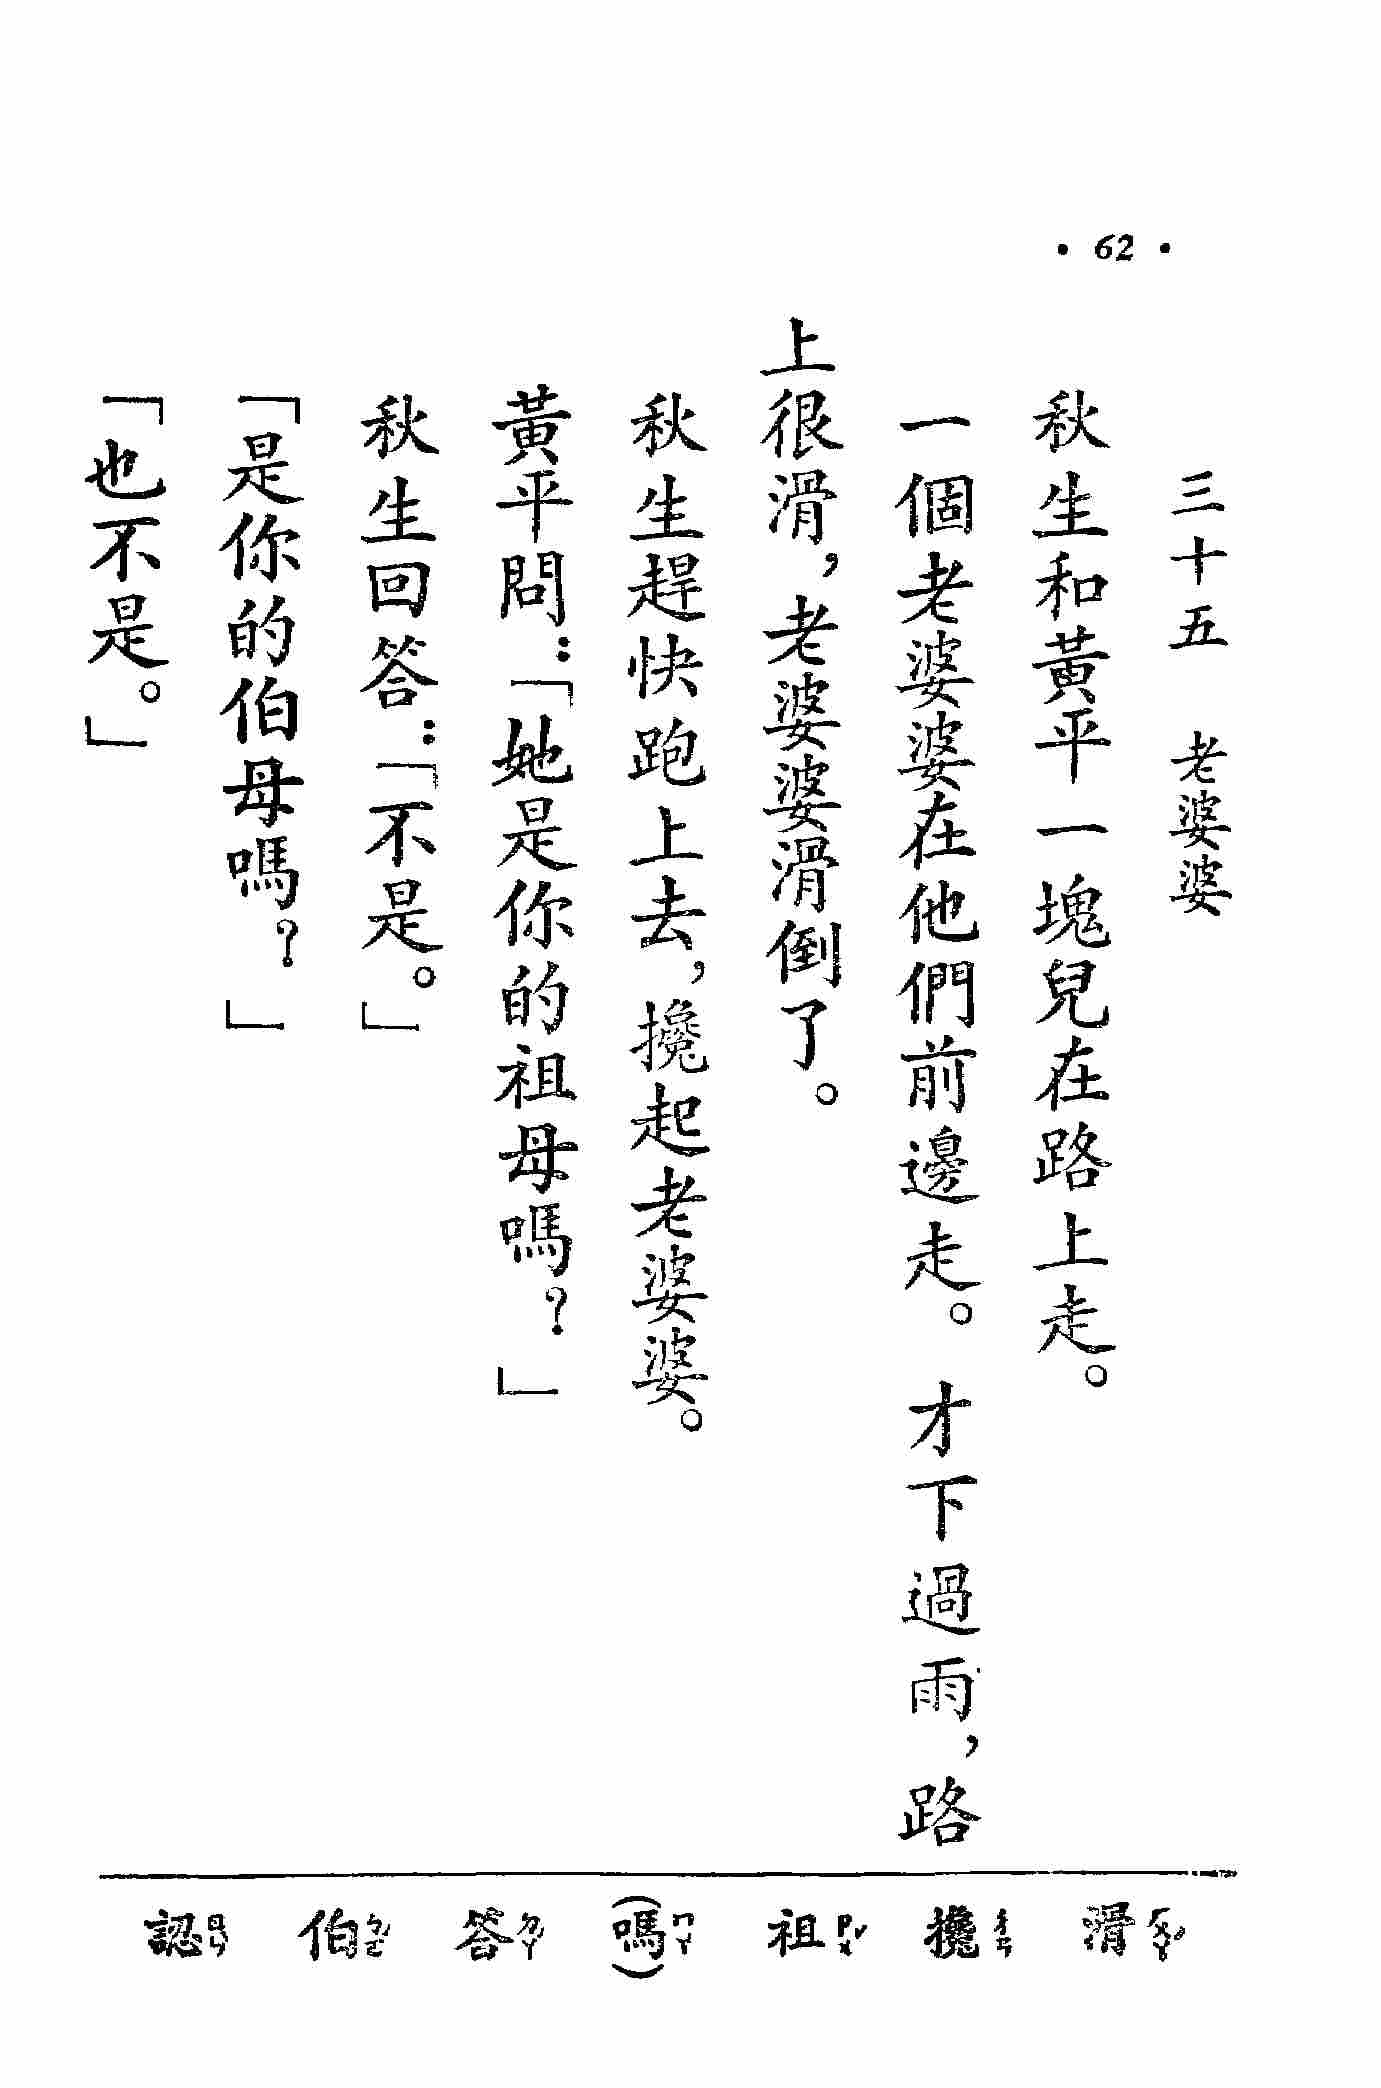 • 62 •
三十五　老婆婆
秋生和黃平一塊兒在路上走。
一個老婆婆在他們前邊走。才下過雨，路
上很滑，老婆婆滑倒了。
秋生趕快跑上去，攙起老婆婆。
黃平問：「她是你的祖母嗎？」
秋生回答：「不是。」
「是你的伯母嗎？」
「也不是。」
滑 攙 祖 (嗎) 答 伯 認